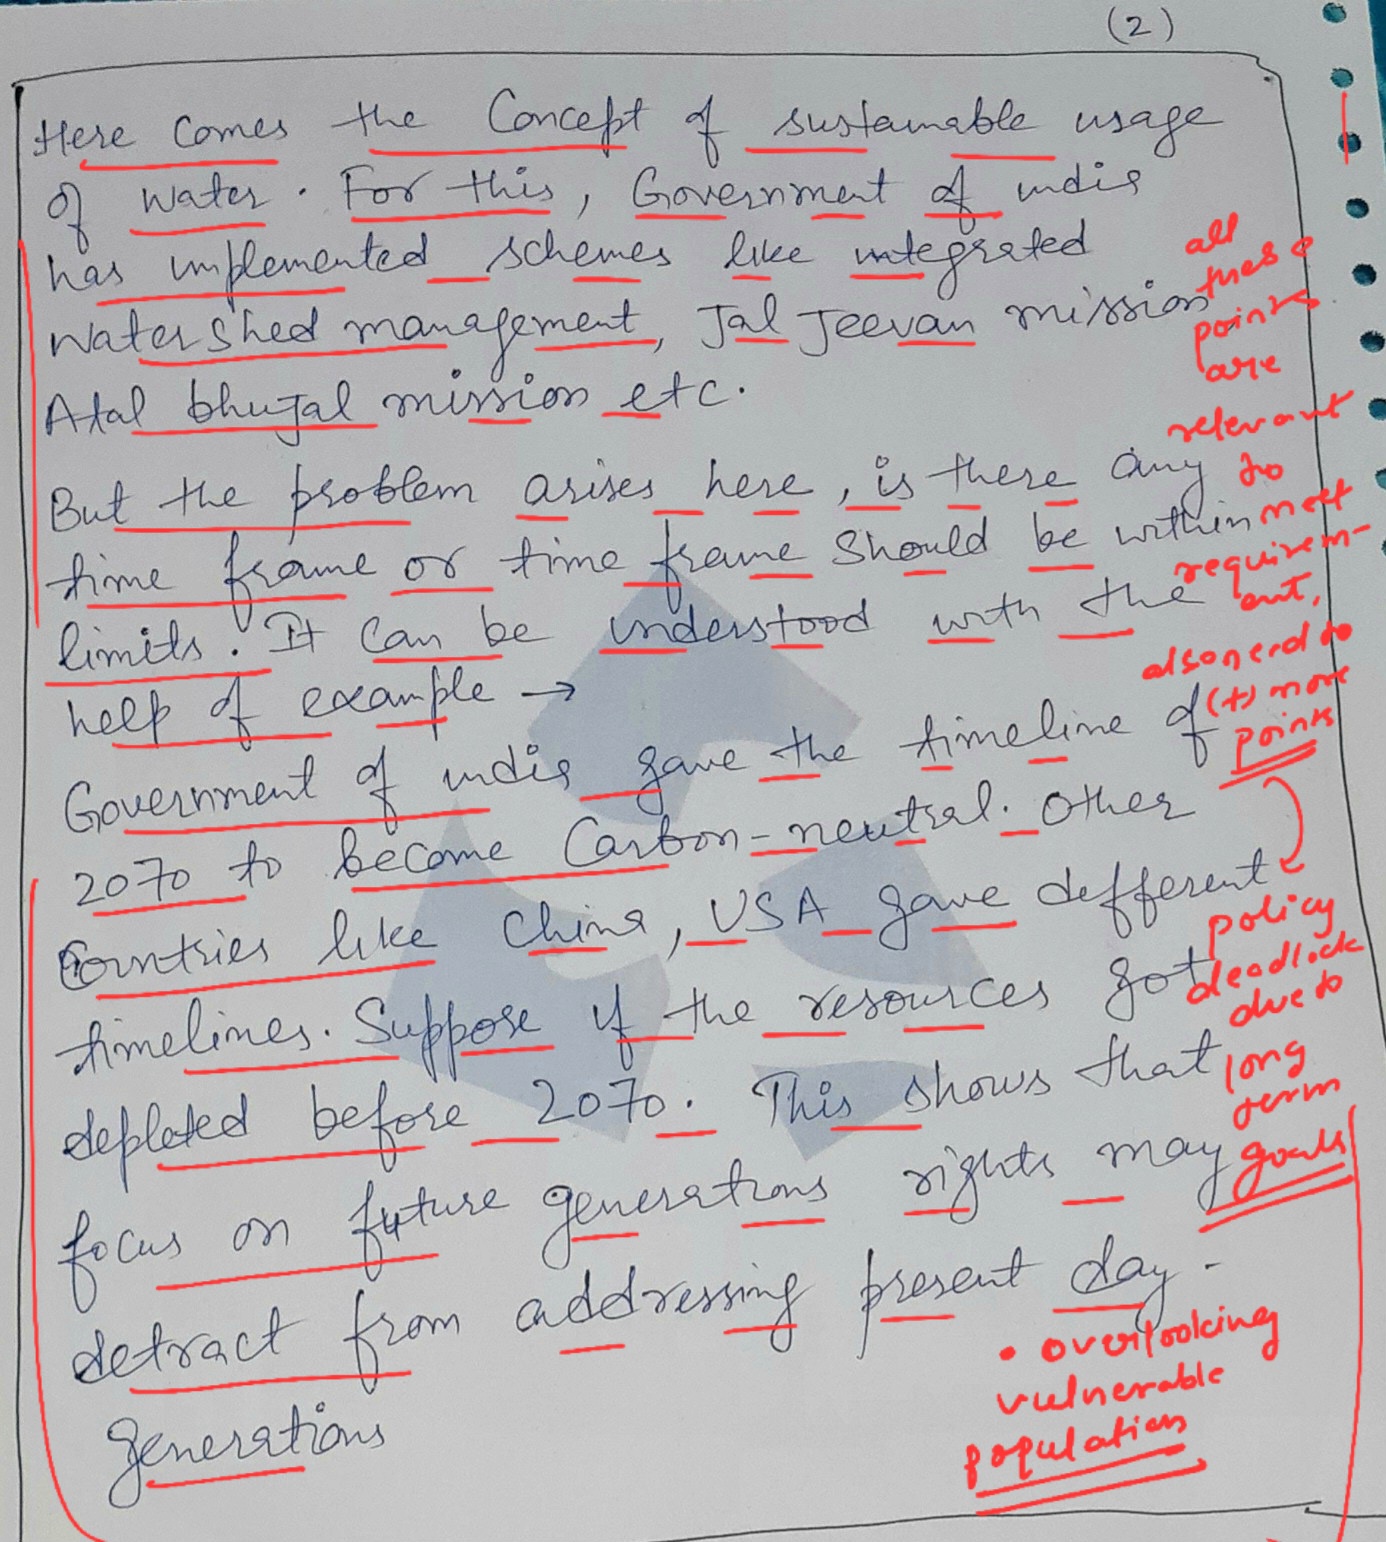 (2)
Here comes the Concept of sustainable usage
of water. For this, Government of india
has implemented schemes like integrated
Watershed management, Jal Jeevan mission
Atal bhujal mission etc.
But the problem arises here, is there any
time frame or time frame should be within
limits. It can be understood with the
help of example →
Government of india gave the timeline of
2070 to become Carbon-neutral. Other
Countries like China, USA gave defferent
timelines. Suppose if the resources got
depleted before 2070. This shows that
focus on future generations rights may
detract from addressing present day.
generations
all
these
points
are
relevant
to
meet
requirem-
ent,
also need to
(+) more
points
policy
deadlock
due to
long
term
goals
• overlooking
vulnerable
populations